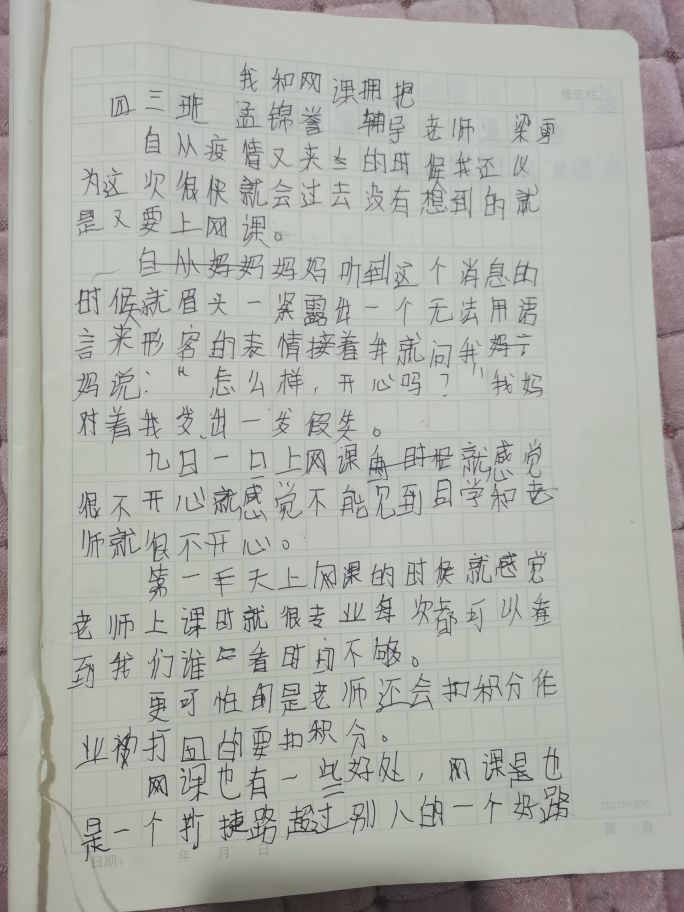 我和网课拥抱
修正栏
四三班 孟锦誉 辅导老师 梁
自从疫情又来的时候我还以
为这次很快就会过去没有想到的就
是又要上网课。
自从妈妈妈妈听到这个消息的
时候就眉头一紧露出一个无法用语
言来形容的表情接着我就问我妈
妈说:“怎么样,开心吗?”我妈
对着我发出一发假笑。
九日一日上网课 就感觉
很不开心就感觉不能见到同学和老
师就很不开心。
第一天上网课的时候就感觉
老师上课时就很专业每次都可以看
到我们谁看时间不够。
更可怕的是老师还会扣积分作
业被打回的要扣积分。
网课也有一些好处,网课是也
是一个捷路超过别人的一个好路
20X15=300
第 页
日期: 年 月 日